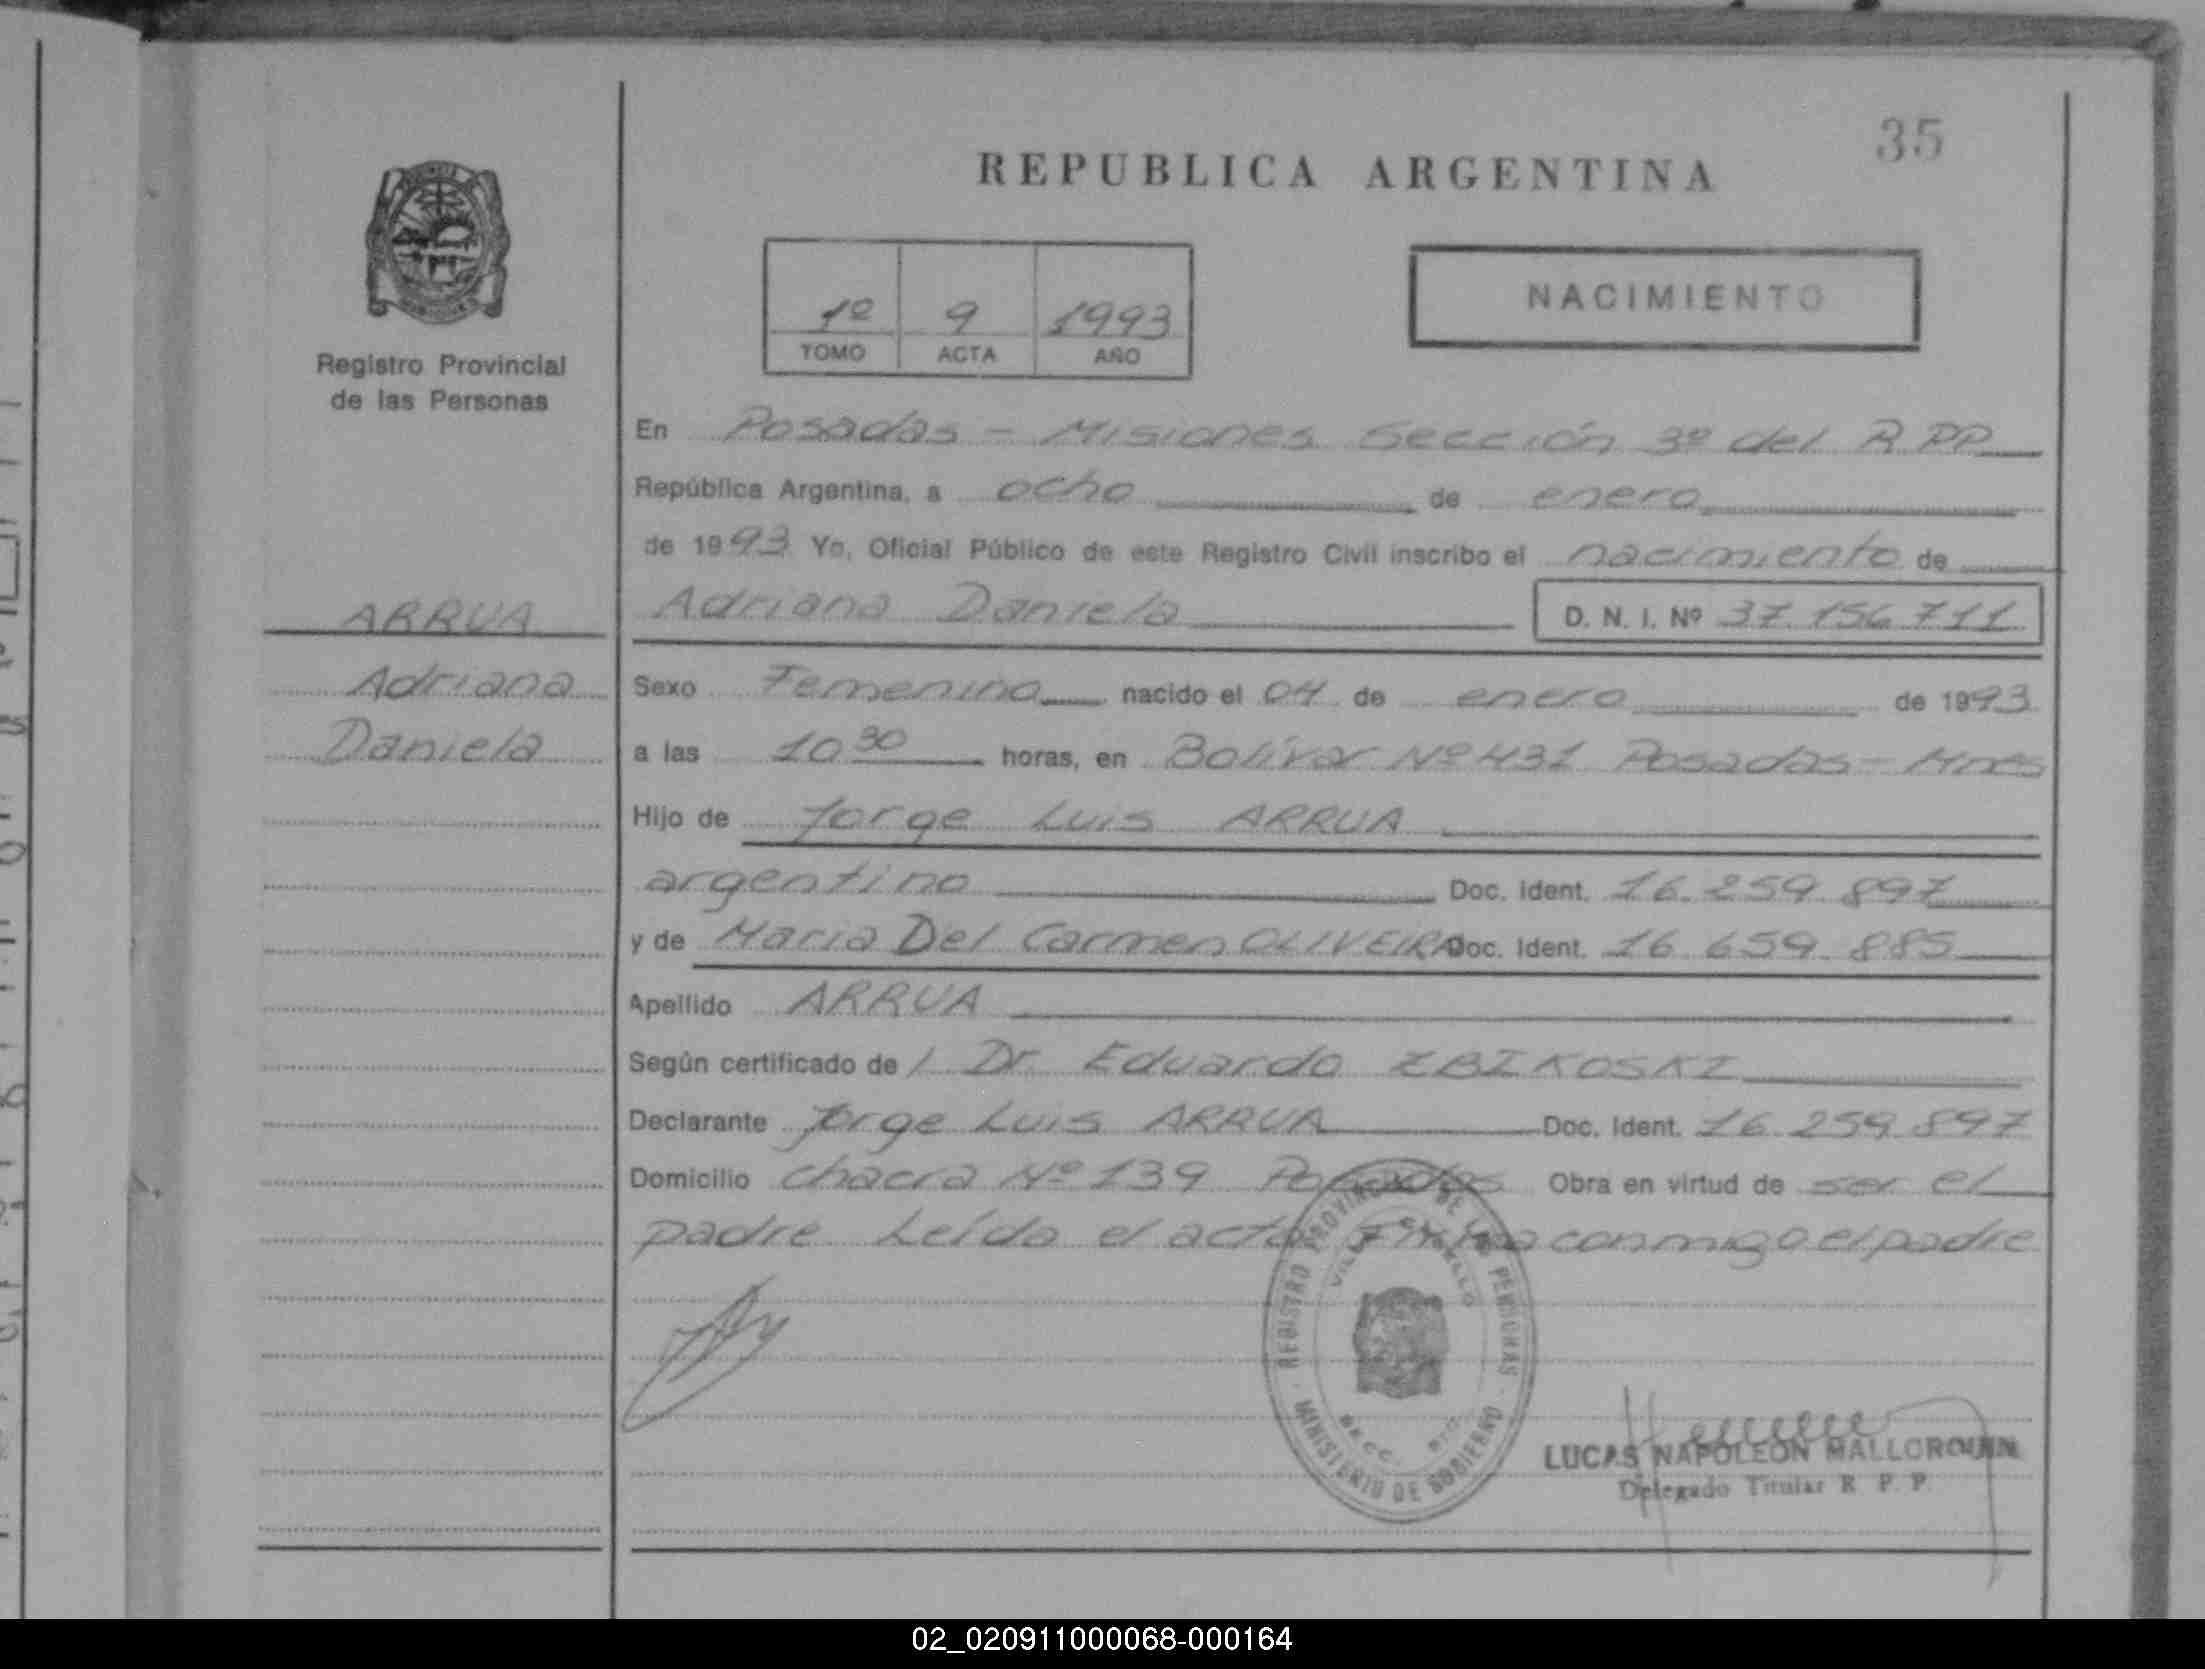 35
REPUBLICA ARGENTINA
NACIMIENTO
1º 9 1993
TOMO ACTA AÑO
Registro Provincial
de las Personas
En Posadas - Misiones Sección 3º del R PP
República Argentina, a ocho de enero
de 1993 Yo, Oficial Público de este Registro Civil inscribo el nacimiento de
ARRUA
Adriana Daniela D. N. I. Nº 37 156 711
Adriana
Sexo Femenino nacido el 04 de enero de 1993
Daniela
a las 10 30 horas, en Bolívar Nº 431 Posadas - Mnes
Hijo de Jorge Luis ARRUA
argentino Doc. Ident. 16 259 897
y de Maria Del Carmen OLIVEIRA Doc. Ident. 16 659 885
Apellido ARRUA
Según certificado de / Dr. Eduardo ZBIKOSKI
Declarante Jorge Luis ARRUA Doc. Ident. 16 259 897
Domicilio chacra Nº 139 Posadas Obra en virtud de ser el
padre Leído el acta Firma conmigo el padre
REGISTRO PROVINCIAL DE LAS PERSONAS
MINISTERIO DE GOBIERNO
LUCAS NAPOLEON MALLORQUIN
Delegado Titular R. P. P.
02_020911000068-000164